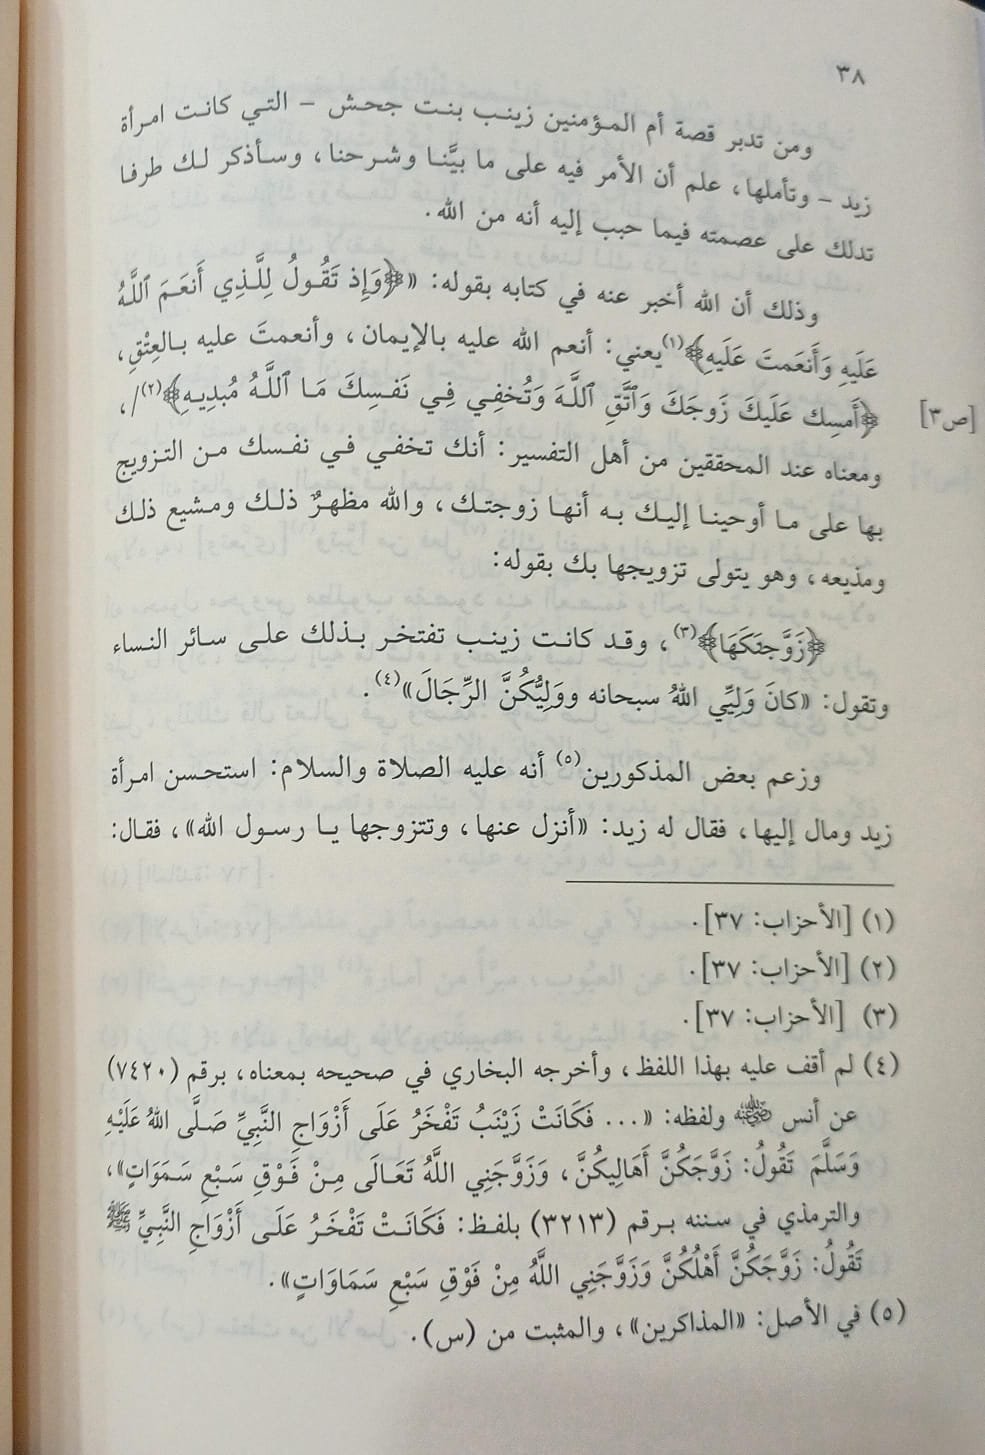 ٣٨
ومن تدبر قصة أم المؤمنين زينب بنت جحش – التي كانت امرأة
زيد – وتأملها، علم أن الأمر فيه على ما بيَّنا وشرحنا، وسأذكر لك طرفا
تدلك على عصمته فيما حبب إليه أنه من الله.
وذلك أن الله أخبر عنه في كتابه بقوله: «﴿وَإِذ تَقُولُ لِلَّذِي أَنعَمَ ٱللَّهُ
عَلَيهِ وَأَنعَمتَ عَلَيهِ﴾(١)يعني: أنعم الله عليه بالإيمان، وأنعمتَ عليه بالعِتْقِ،
﴿أَمسِك عَلَيكَ زَوجَكَ وَٱتَّقِ ٱللَّهَ وَتُخفِي فِي نَفسِكَ مَا ٱللَّهُ مُبدِيهِ﴾(٢)/،
[ص٣]
ومعناه عند المحققين من أهل التفسير: أنك تخفي في نفسك من التزويج
بها على ما أوحينا إليك به أنها زوجتك، والله مظهرٌ ذلك ومشيع ذلك
ومذيعه، وهو يتولى تزويجها بك بقوله:
﴿زَوَّجنَٰكَهَا﴾(٣)، وقد كانت زينب تفتخر بذلك على سائر النساء
وتقول: «كانَ وَلِيِّي اللهُ سبحانه ووَلِيُّكُنَّ الرِّجَالَ»(٤).
وزعم بعض المذكورين(٥) أنه عليه الصلاة والسلام: استحسن امرأة
زيد ومال إليها، فقال له زيد: «أنزل عنها، وتتزوجها يا رسول الله»، فقال:
(١) [الأحزاب: ٣٧].
(٢) [الأحزاب: ٣٧].
(٣) [الأحزاب: ٣٧].
(٤) لم أقف عليه بهذا اللفظ، وأخرجه البخاري في صحيحه بمعناه، برقم (٧٤٢٠)
عن أنس رضي الله عنه ولفظه: «... فَكَانَتْ زَيْنَبُ تَفْخَرُ عَلَى أَزْوَاجِ النَّبِيِّ صَلَّى اللهُ عَلَيْهِ
وَسَلَّمَ تَقُولُ: زَوَّجَكُنَّ أَهَالِيكُنَّ، وَزَوَّجَنِي اللَّهُ تَعَالَى مِنْ فَوْقِ سَبْعِ سَمَوَاتٍ»،
والترمذي في سننه برقم (٣٢١٣) بلفظ: فَكَانَتْ تَفْخَرُ عَلَى أَزْوَاجِ النَّبِيِّ ﷺ
تَقُولُ: زَوَّجَكُنَّ أَهْلُكُنَّ وَزَوَّجَنِي اللَّهُ مِنْ فَوْقِ سَبْعِ سَمَاوَاتٍ».
(٥) في الأصل: «المذاكرين»، والمثبت من (س).